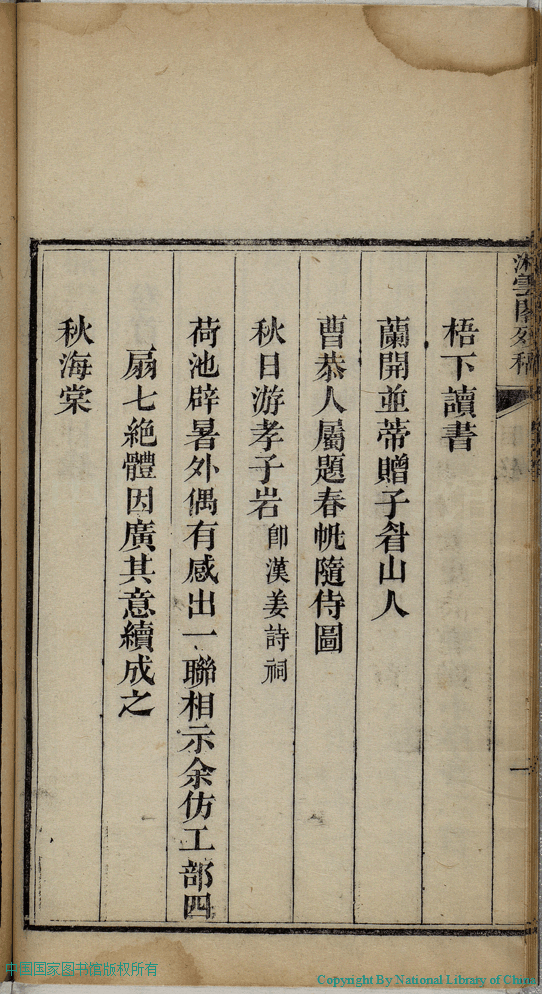 梧下讀書
蘭開並蒂贈子眉山人
曹恭人屬題春帆隨侍圖
秋日游孝子岩 卽漢姜詩祠
荷池辟暑外偶有感出一聯相示余仿工部四
扇七絶體因廣其意續成之
秋海棠
中国国家图书馆版权所有
Copyright By National Library of China